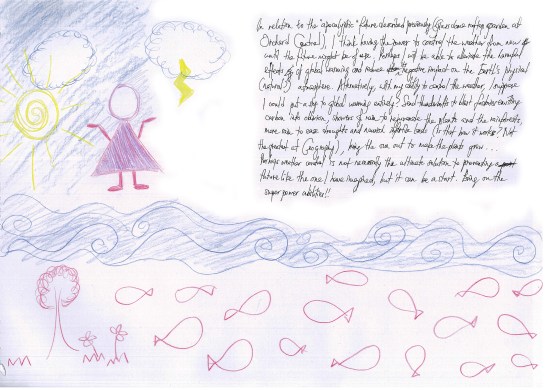 In relation to the "apocalyptic" future described previously (Grass dome nature garden at
Orchard Central), I think having the power to control the weather from now
until the future might be of use. Perhaps I will be able to alleviate the harmful
effects of global warming and reduce the negative impact on the Earth's physical
(natural?) atmosphere. Alternatively, with my ability to control the weather, I suppose
I could put a stop to global warming entirely? Send thunderbolts to blast factories emitting
carbon into oblivion, showers of rain to rejuvenate the plants and the rainforests,
more rain to ease droughts and (Is that how it works? Not
the greatest at Geography), bring the sun out to make the plants grow...
Perhaps weather control is not necessarily the ultimate solution to preventing a
future like the one I have imagined, but it can be a start. Bring on the
super power abilities!!